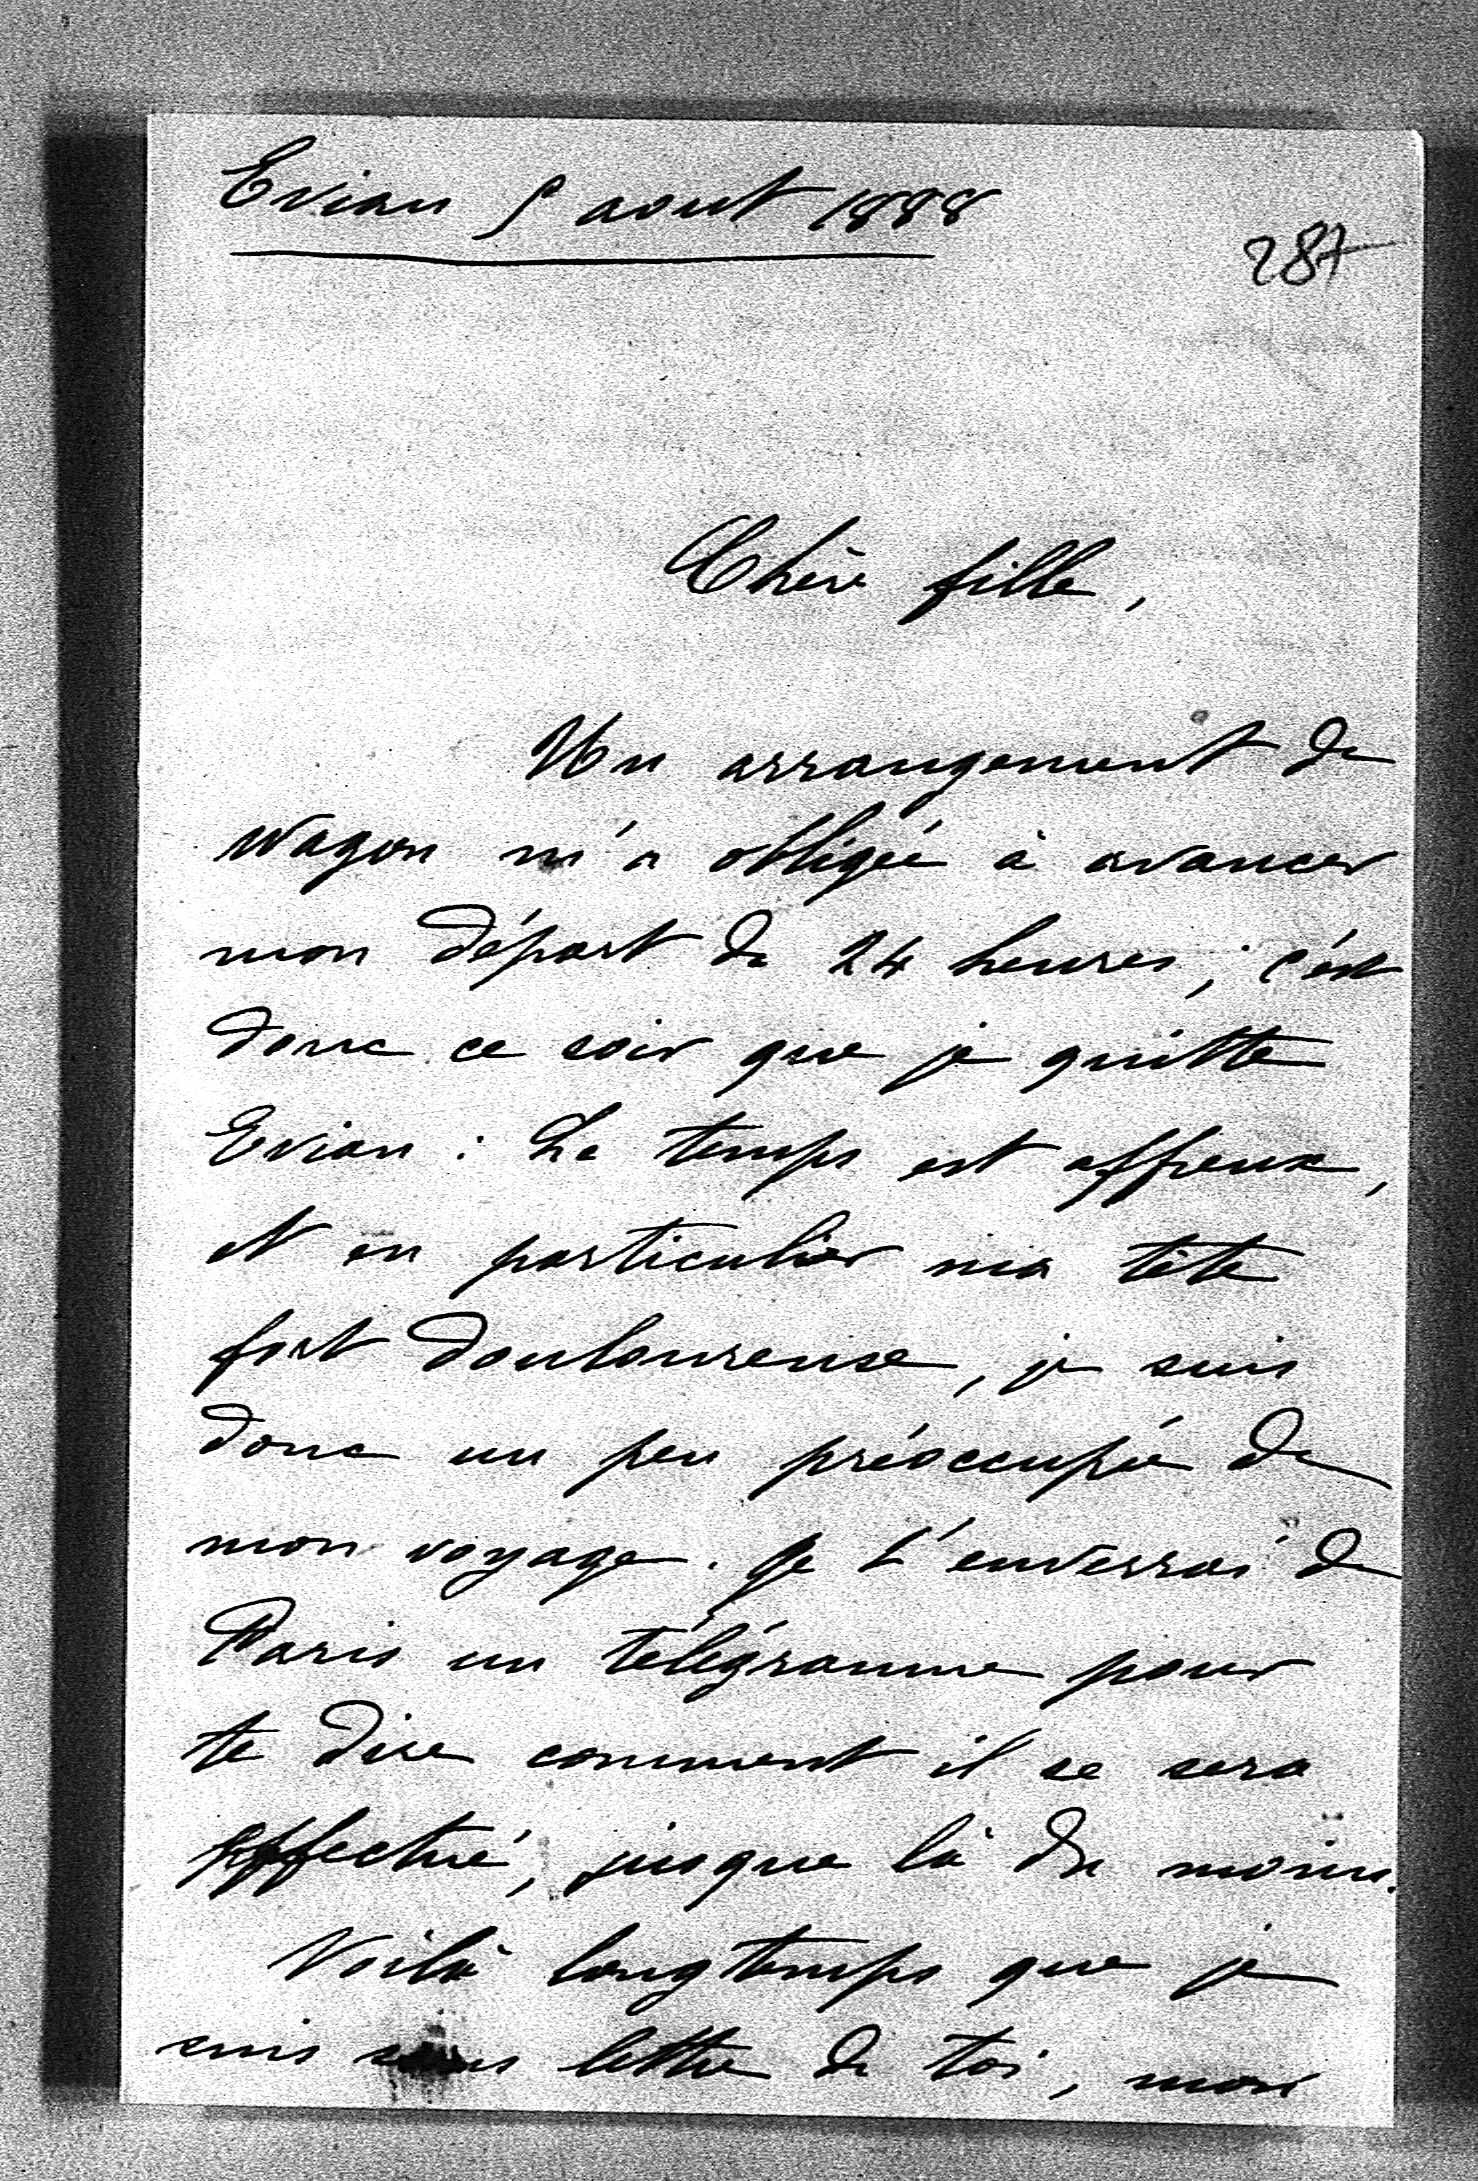 Evian 5 aout 1888
287
Chère fille,
Un arrangement de
wagon m'a obligée à avancer
mon départ de 24 heures, c'est
donc ce soir que je quitte
Evian : Le temps est affreux,
et en particulier ma tête
fort douloureuse, je suis
donc un peu préoccupée de
mon voyage. Je t'enverrai de
Paris un télégramme pour
te dire comment il se sera
effectué, jusque là du moins.
Voilà longtemps que je
suis sans lettre de toi, mon